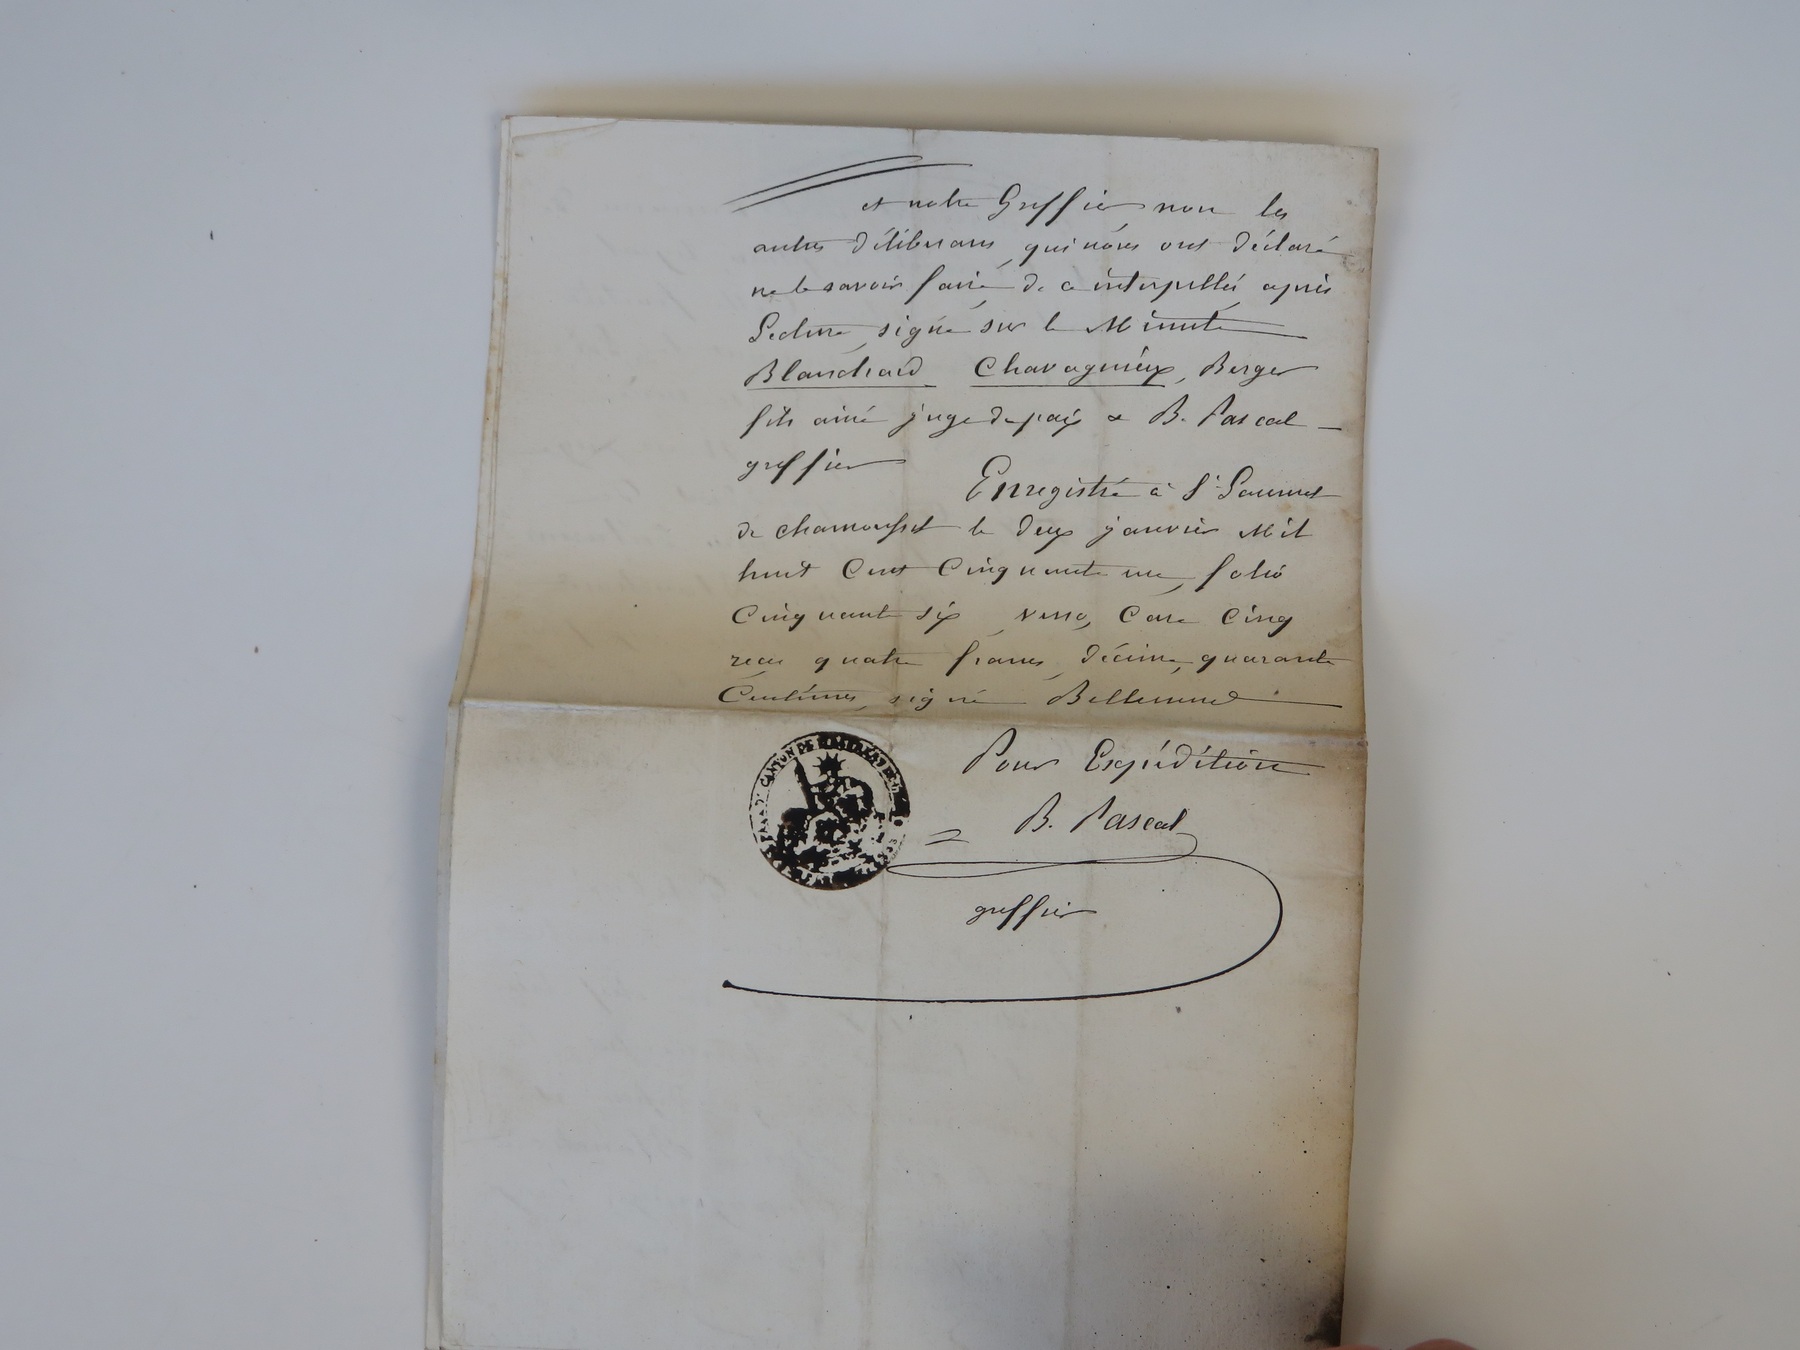 et notre Greffier non les
autres délibérans, qui nous ont déclaré
ne le savoir faire, de ce interpellés après
Lecture, signé sur la Minute
Blanchard Chavagnieux, Berger
fils ainé juge de paix & B. Pascal
greffier
Enregistré à St Laurent
de chamousset le deux janvier Mil
huit Cent Cinquante un, folio
Cinquante six verso, Case Cinq
reçu quatre francs, décime, quarante
Centimes, signé
CANTON DE
Pour Expédition
B. Pascal
greffier